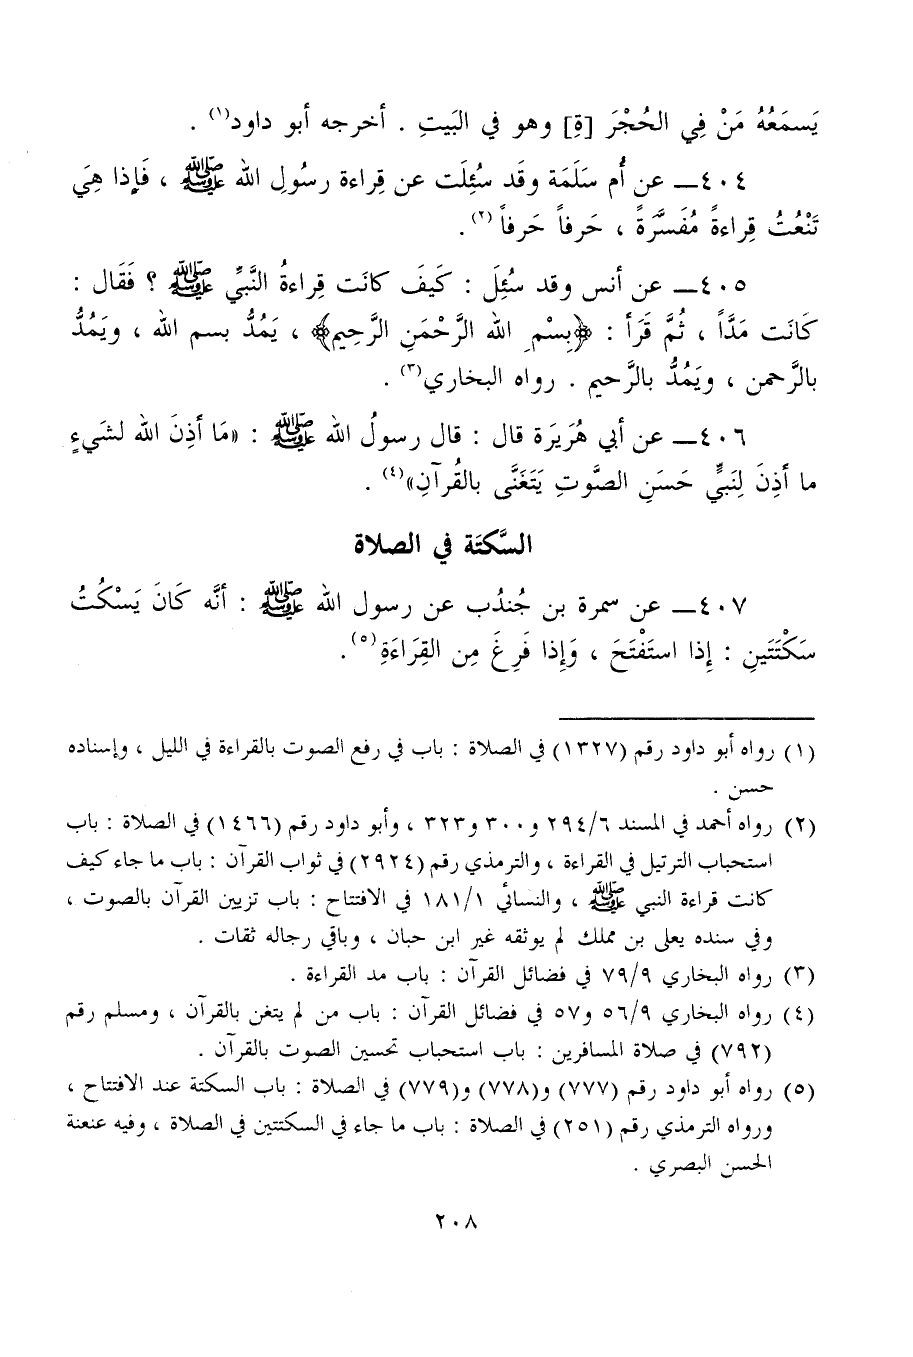 يَسمَعُهُ مَنْ فِي الحُجْرَ [ةِ] وهو في البَيتِ . أخرجه أبو داود(١) .
٤٠٤ــ عن أُم سَلَمَة وقَد سُئِلَت عن قِراءة رسُولِ الله ﷺ ، فَإِذا هِيَ
تَنْعُتُ قِراءةً مُفَسَّرَةً ، حَرفاً حَرفاً(٢).
٤٠٥ــ عن أنس وقد سُئِلَ : كَيفَ كانَت قِراءةُ النَّبيِّ ﷺ ؟ فَقَال :
كَانَت مَدَّاً ، ثُمَّ قَرَأ : ﴿بِسْمِ الله الرَّحْمَنِ الرَّحِيمِ﴾ ، يَمُدُّ بسم الله ، ويَمُدُّ
بالرَّحمن ، ويَمُدُّ بالرَّحيم . رواه البخاري(٣) .
٤٠٦ــ عن أبي هُرَيرَة قال : قال رسولُ الله ﷺ : «مَا أذِنَ الله لشَيءٍ
ما أَذِنَ لِنَبيٍّ حَسَنِ الصَّوتِ يَتَغَنَّى بالقُرآنِ»(٤) .
السَّكتَة في الصلاة
٤٠٧ــ عن سمرة بن جُندُب عن رسول الله ﷺ : أنَّه كَانَ يَسْكُتُ
سَكْتَتَينِ : إِذا استَفْتَحَ ، وَإِذا فَرِغَ مِن القِرَاءَةِ(٥).
(١) رواه أبو داود رقم (١٣٢٧) في الصلاة : باب في رفع الصوت بالقراءة في الليل ، وإسناده
حسن .
(٢) رواه أحمد في المسند ٢٩٤/٦ و٣٠٠ و٣٢٣ ، وأبو داود رقم (١٤٦٦) في الصلاة : باب
استحباب الترتيل في القراءة ، والترمذي رقم (٢٩٢٤) في ثواب القرآن : باب ما جاء كيف
كانت قراءة النبي ﷺ ، والنسائي ١٨١/١ في الافتتاح : باب تزيين القرآن بالصوت ،
وفي سنده يعلى بن مملك لم يوثقه غير ابن حبان ، وباقي رجاله ثقات .
(٣) رواه البخاري ٧٩/٩ في فضائل القرآن : باب مد القراءة .
(٤) رواه البخاري ٥٦/٩ و٥٧ في فضائل القرآن : باب من لم يتغن بالقرآن ، ومسلم رقم
(٧٩٢) في صلاة المسافرين : باب استحباب تحسين الصوت بالقرآن .
(٥) رواه أبو داود رقم (٧٧٧) و(٧٧٨) و(٧٧٩) في الصلاة : باب السكتة عند الافتتاح ،
ورواه الترمذي رقم (٢٥١) في الصلاة : باب ما جاء في السكتتين في الصلاة ، وفيه عنعنة
الحسن البصري .
٢٠٨